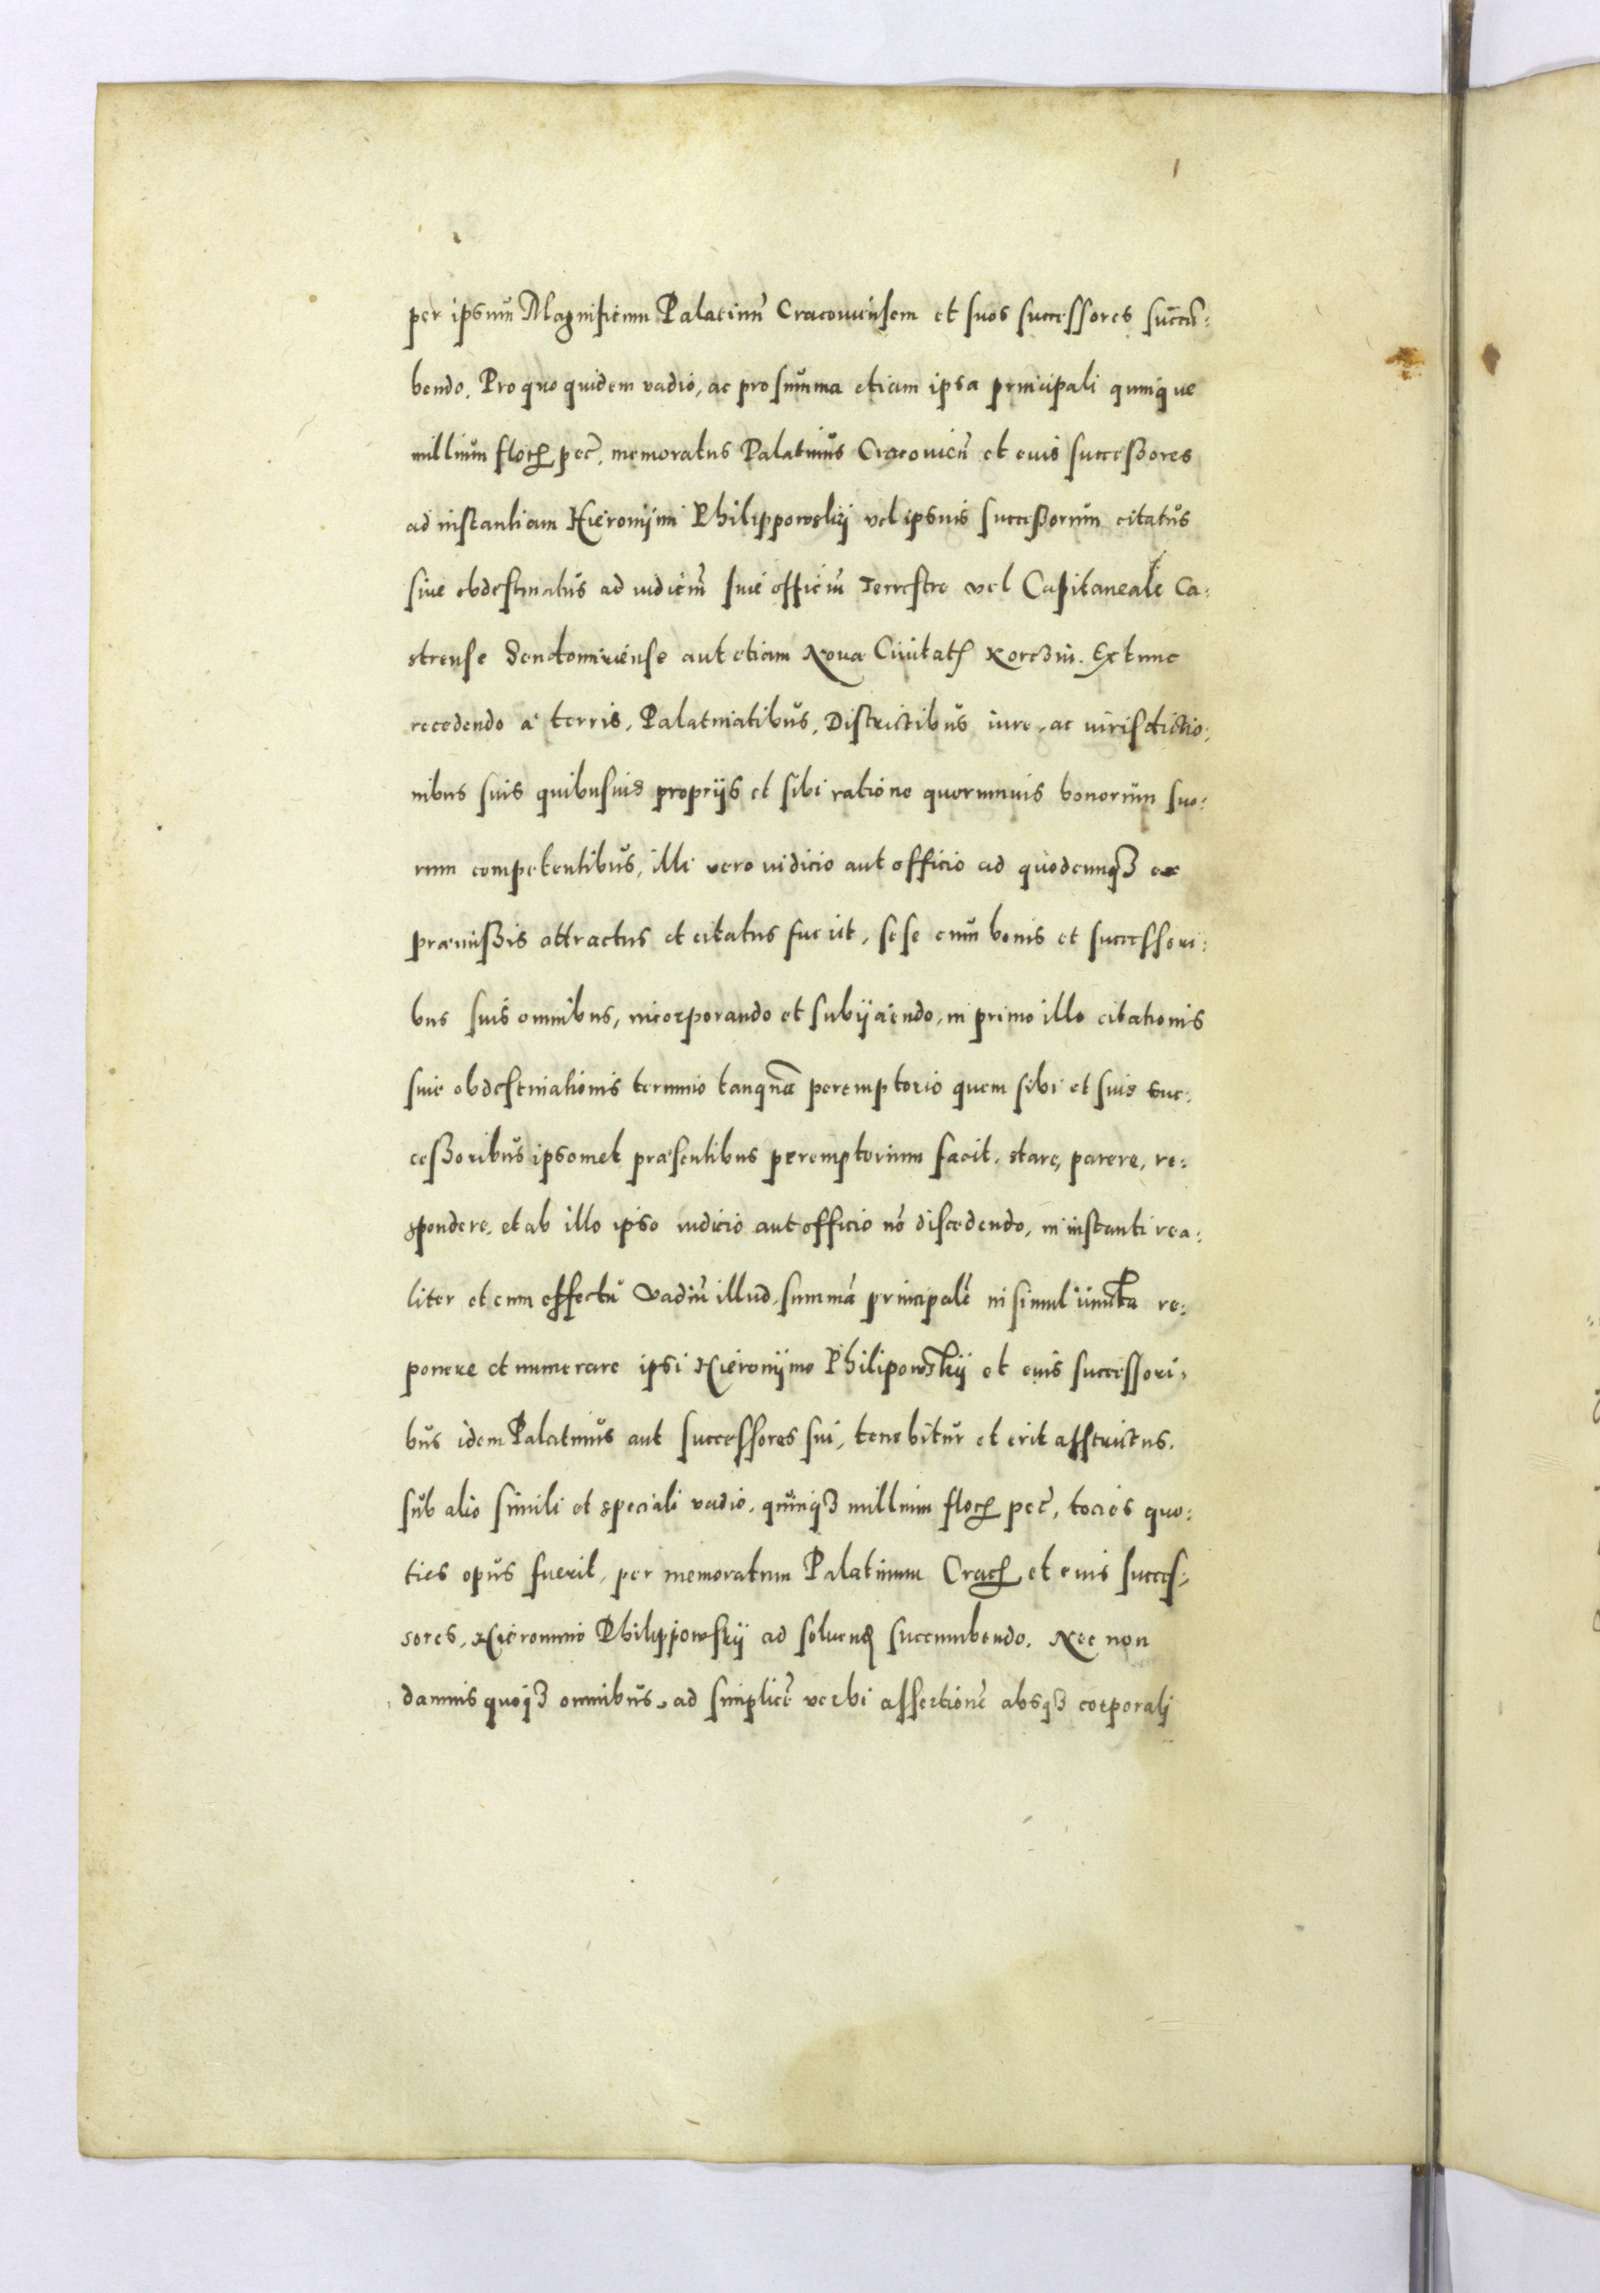 per ipsum Magnificum Palatinũ Cracouiensem et suos successores succũ:
bendo. Pro quo quidem vadio, ac pro summa etiam ipsa principali quinque
millium floꝝ pec̃, memoratus Palatinus Cracouieñ et euis successores
ad instantiam Hieronijmi Philippowskij vel ipsius successorum citatus
siue obdestinatus ad iudiciũ siue officiũ Terrestre vel Capitaneale Ca:
strense Sendomiriense aut etiam Noua Ciuitatꝭ Korczin. Ex tunc
recedendo à terris, Palatinatibus, Districtibus iure, ac iurisdictio:
nibus suis quibusuis proprijs et sibi ratione quorumuis bonorum suo:
rum competentibus, illi vero iudicio aut officio ad quodcunqꝫ ex
præmissis attractus et citatus fuerit, sese cum bonis et successori:
bus suis omnibus, incorporando et subijciendo, in primo illo citationis
siue obdestinationis termino tanquã peremptorio quem sibi et suis suc:
cessoribus ipsomet præsentibus peremptorium facit, stare, parere, re:
spondere, et ab illo ipso iudicio aut officio nõ discedendo, in instanti rea:
liter et cum effectu vadiũ illud, summã principalẽ insimul iuncta re:
ponere et numerare ipsi Hieronijmo Philipowskij et euis successori:
bus idem Palatinus aut successores sui, tenebitur et erit asstrictus.
sub alio simili et speciali vadio, quinqꝫ millium floꝝ pec̃, tocies quo:
ties opus fuerit, per memoratum Palatinum Cracꝭ et euis succes:
sores, Hieronimo Philippowskij ad soluenꝭ succumbendo. Nec non
damnis quoqꝫ omnibus, ad simplicẽ verbi assertionẽ absqꝫ corporalj